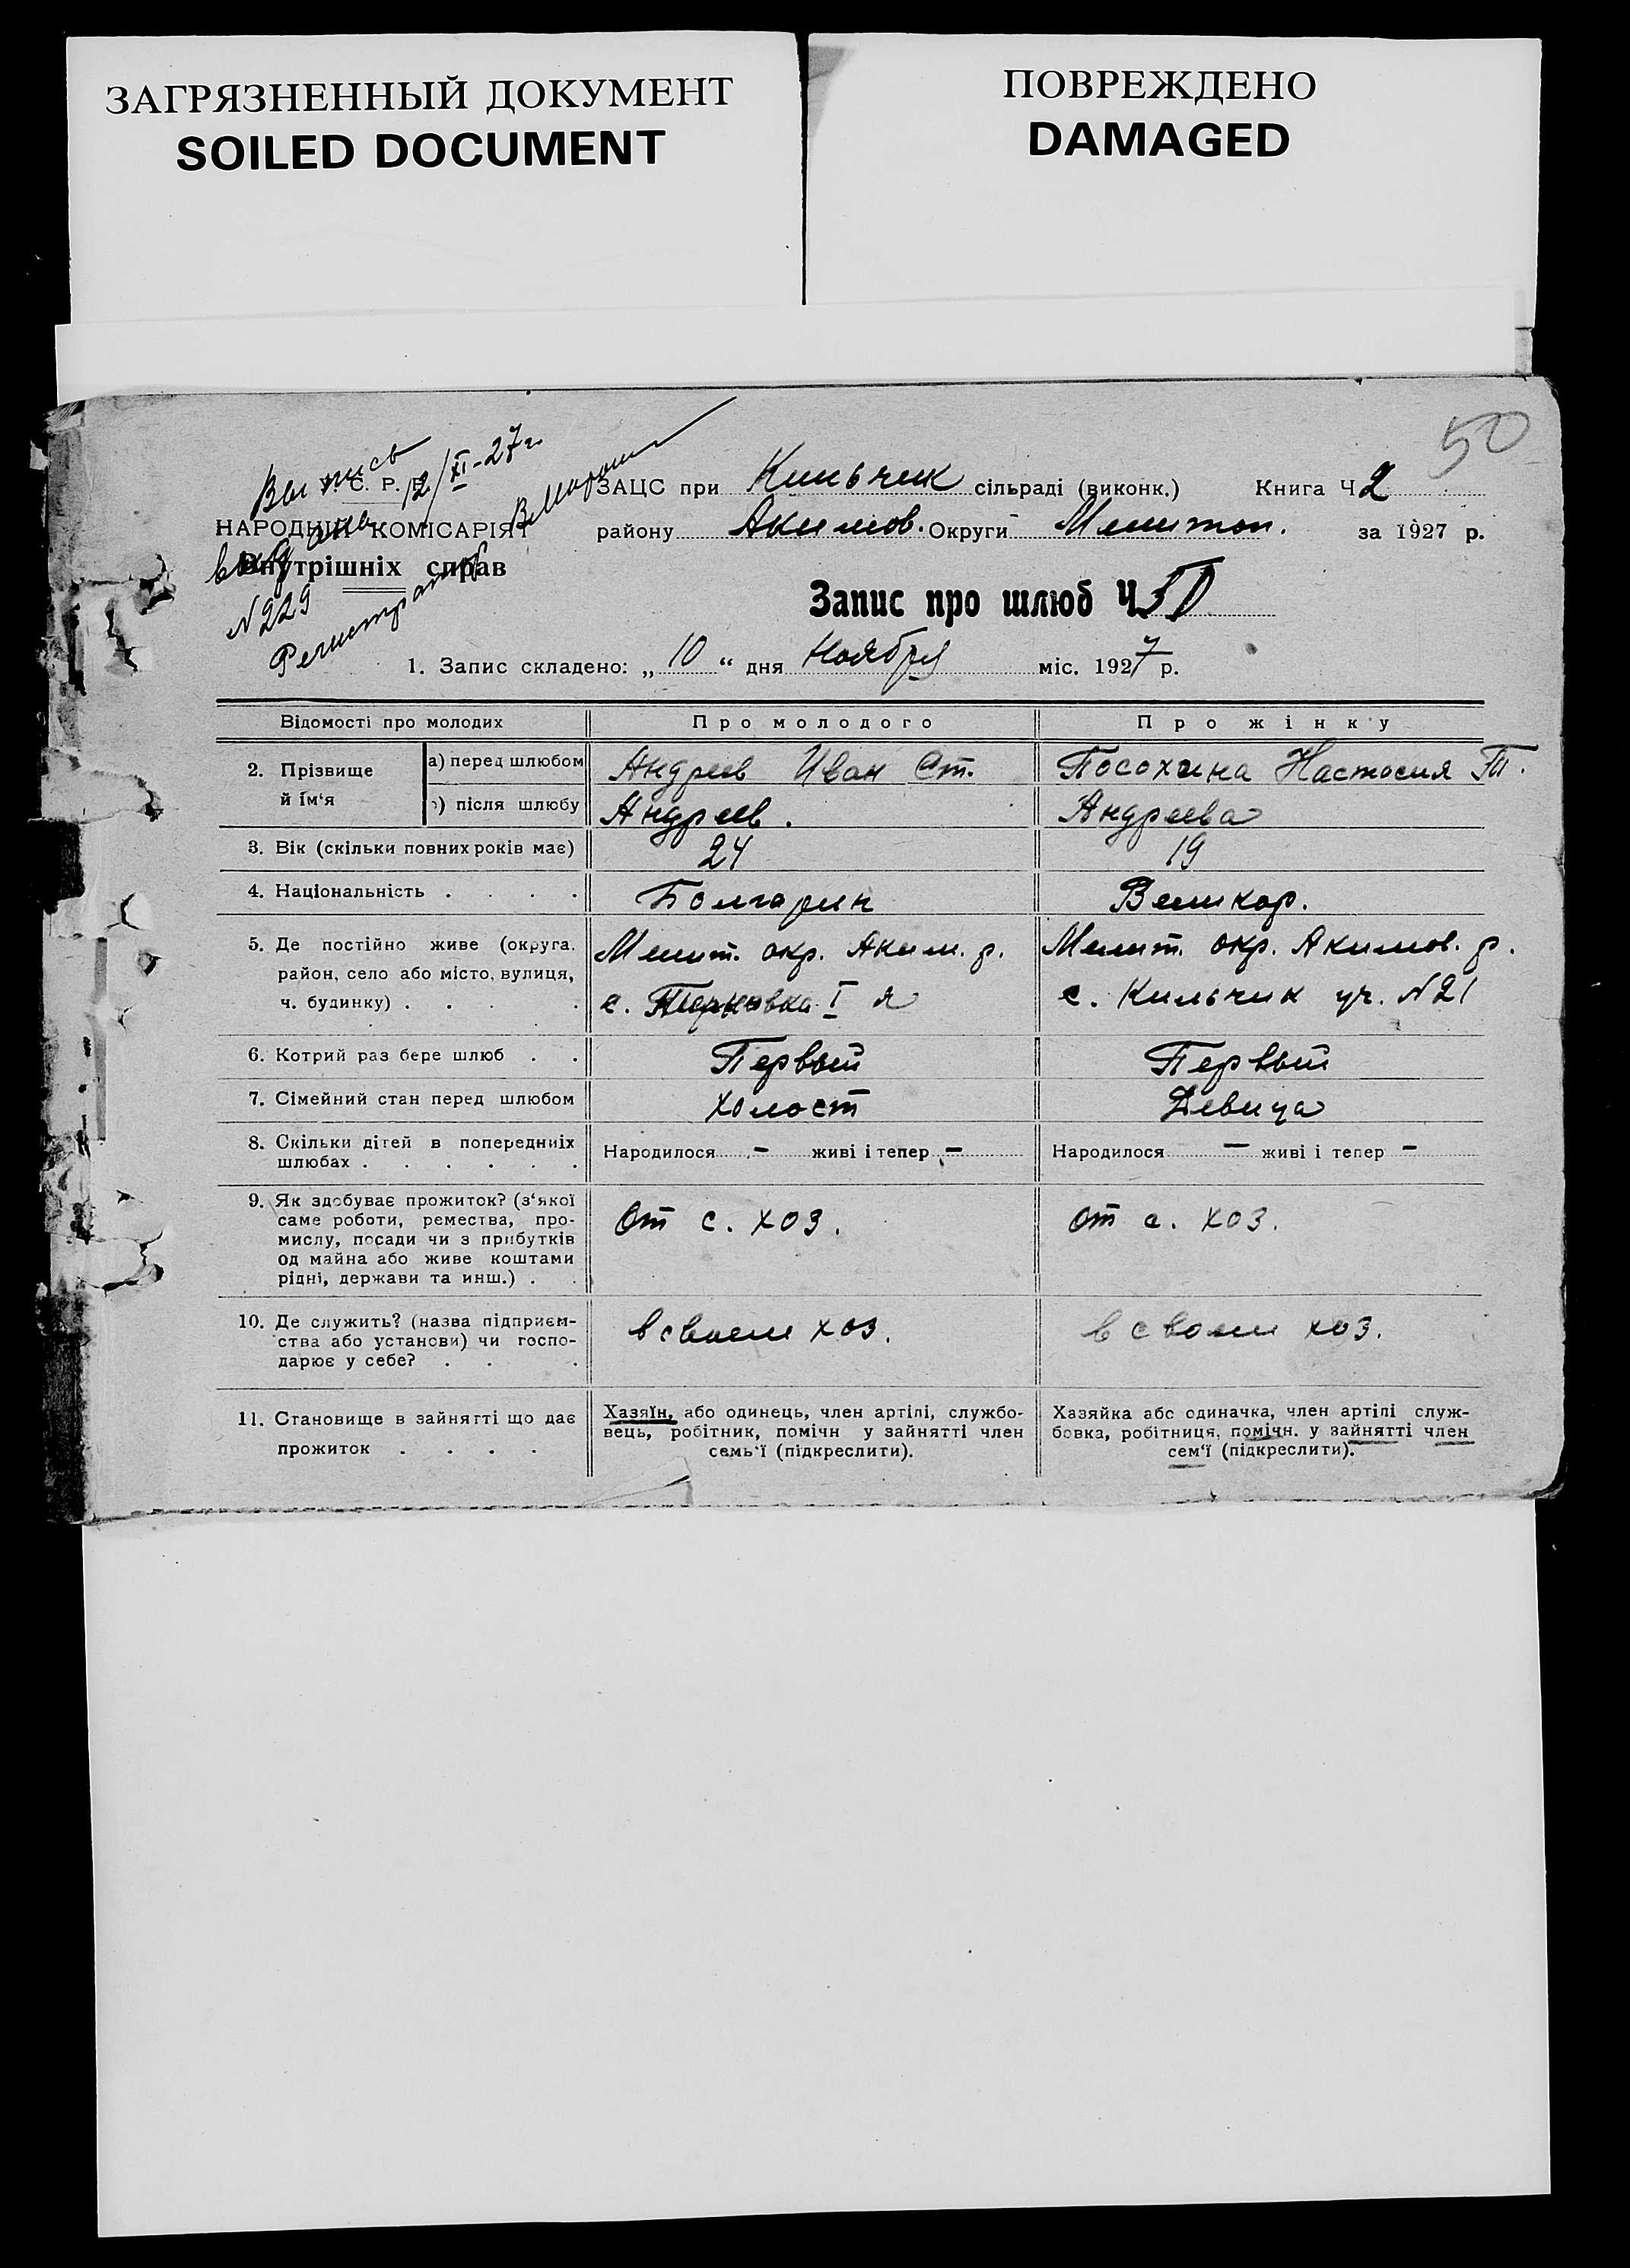 ЗАГРЯЗНЕННЫЙ ДОКУМЕНТ
SOILED DOCUMENT
ПОВРЕЖДЕНО
DAMAGED
50
Выпись 12/XI-27г.
выдана
N229
Регистратор
У. С. Р. Р.
НАРОДНИЙ КОМІСАРІЯТ
Внутрішніх справ
ЗАЦС при Кильчик сільраді (виконк.) Книга Ч 2
району Акимов. Округи Мелитоп. за 1927 р.
Запис про шлюб Ч 50
1. Запис складено: „ 10 “ дня Ноября міс. 1927 р.
Відомості про молодих Про молодого Про жінку
2. Прізвище й ім‘я а) перед шлюбом Андреев Иван Ст. Посохина Настосия Т.
б) після шлюбу Андреев. Андреева
3. Вік (скільки повних років має) 24 19
4. Національність . . . . Болгарин Великор.
5. Де постійно живе (округа, Мелит. окр. Аким. р. Мелит. окр. Акимов. р.
район, село або місто, вулиця,
ч. будинку) . . . с. I я с. Кильчик уч. N21
6. Котрий раз бере шлюб . . Первый Первый
7. Сімейний стан перед шлюбом Холост Девица
8. Скільки дітей в попередніх Народилося — живі і тепер — Народилося — живі і тепер —
шлюбах . . . . . .
9. Як здобуває прожиток? (з‘якої От с. хоз. От с. хоз.
саме роботи, ремества, про-
мислу, посади чи з прибутків
од майна або живе коштами
рідні, держави та инш.) . .
10. Де служить? (назва підприєм- в своем хоз. в своем хоз.
ства або установи) чи госпо-
дарює у себе? . . .
11. Становище в зайнятті що дає Хазяїн, або одинець, член артілі, службо- Хазяйка або одиначка, член артілі служ-
вець, робітник, помічн у зайнятті член бовка, робітниця, помічн. у зайнятті член
прожиток . . . . семь‘ї (підкреслити). сем‘ї (підкреслити).